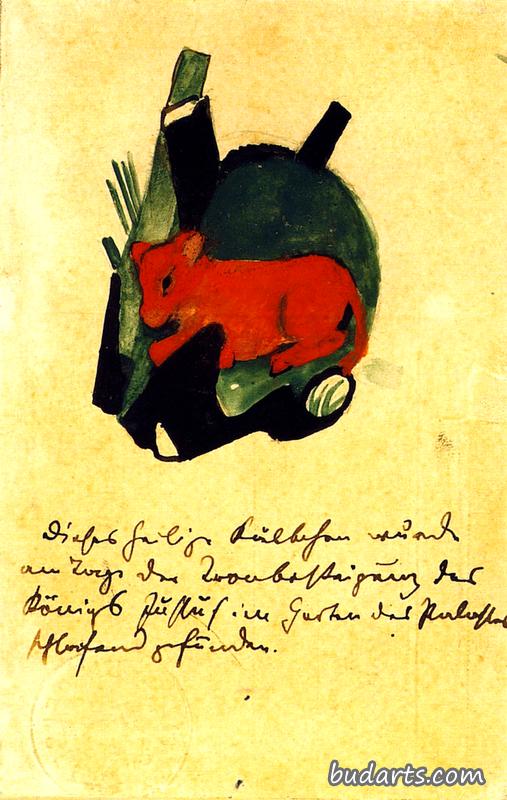 Dieses heilige Kälbchen wurde
am Tage der Tronbesteigung des
Königs Jussuf im Garten des Palastes
schlafend gefunden.
budarts.com